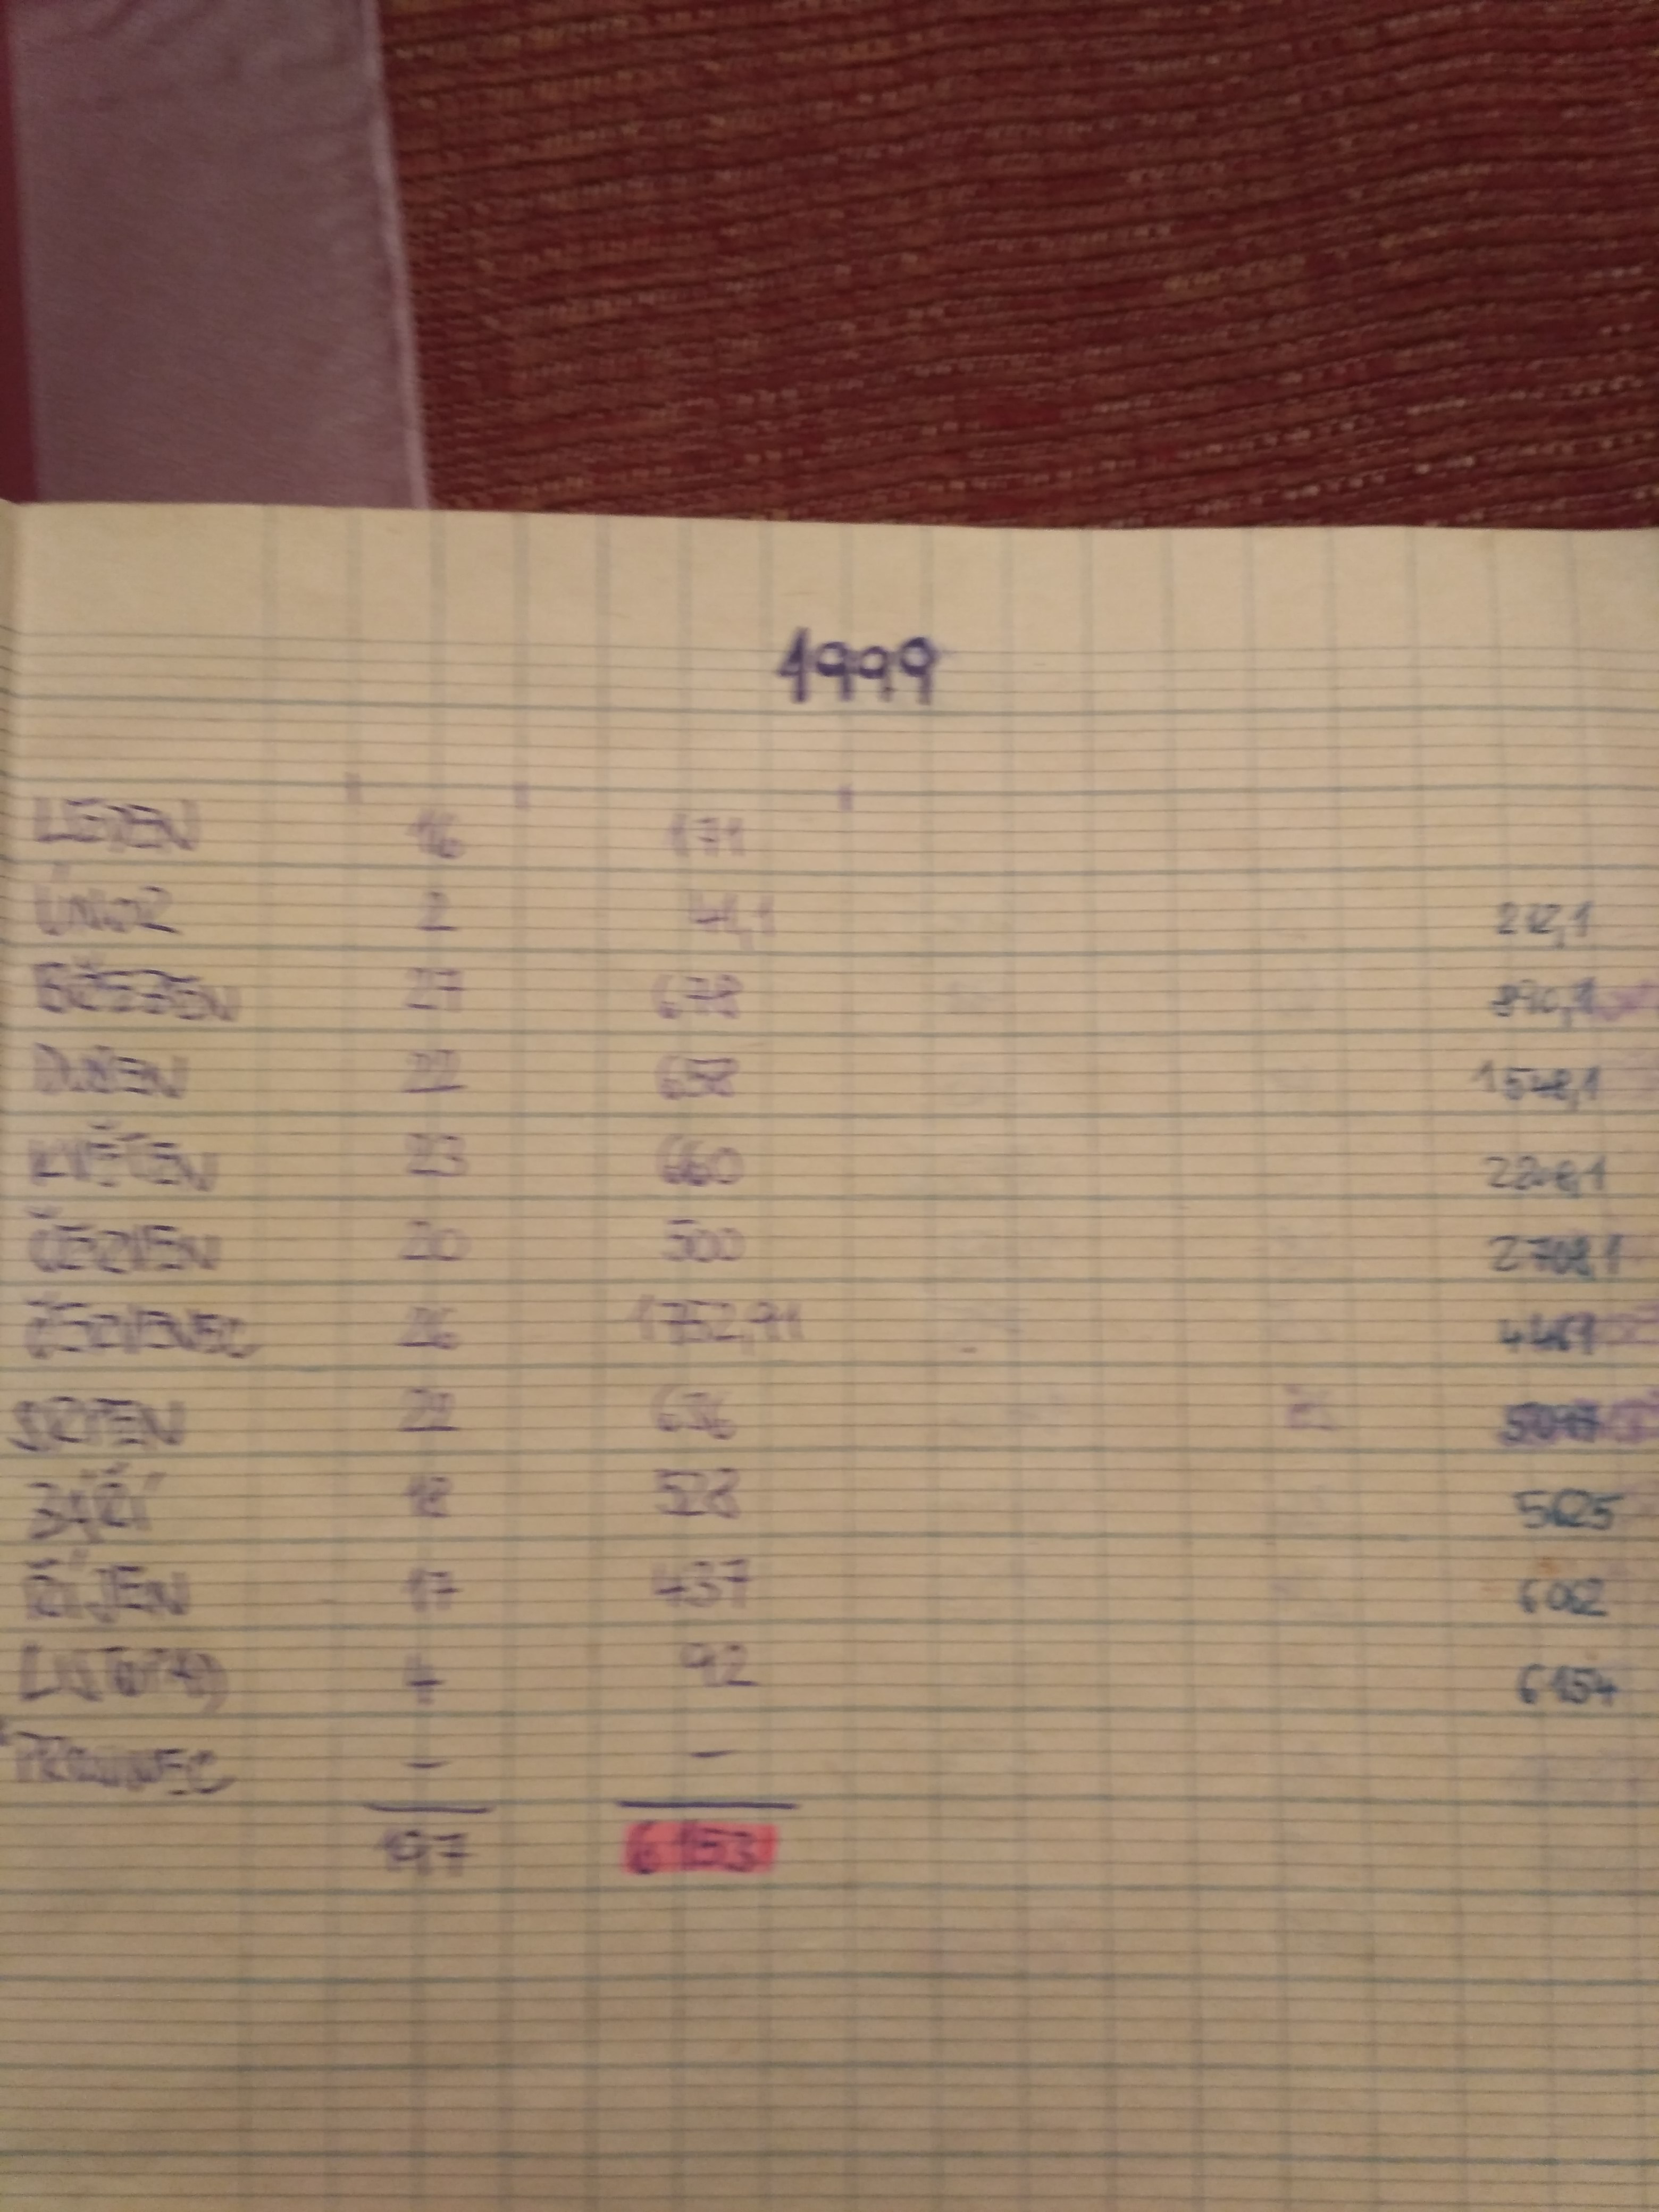 1999
LEDEN 16 171
ÚNOR 2 41,1 212,1
BŘEZEN 27 678 890,1
DUBEN 22 658 1548,1
KVĚTEN 23 660 2208,1
ČERVEN 20 500 2708,1
ČERVENEC 26 1752,91 4461
SRPEN 22 636 5097
ZÁŘÍ 18 528 5625
ŘÍJEN 17 437 6062
LISTOPAD 4 92 6154
PROSINEC — —
197 6153